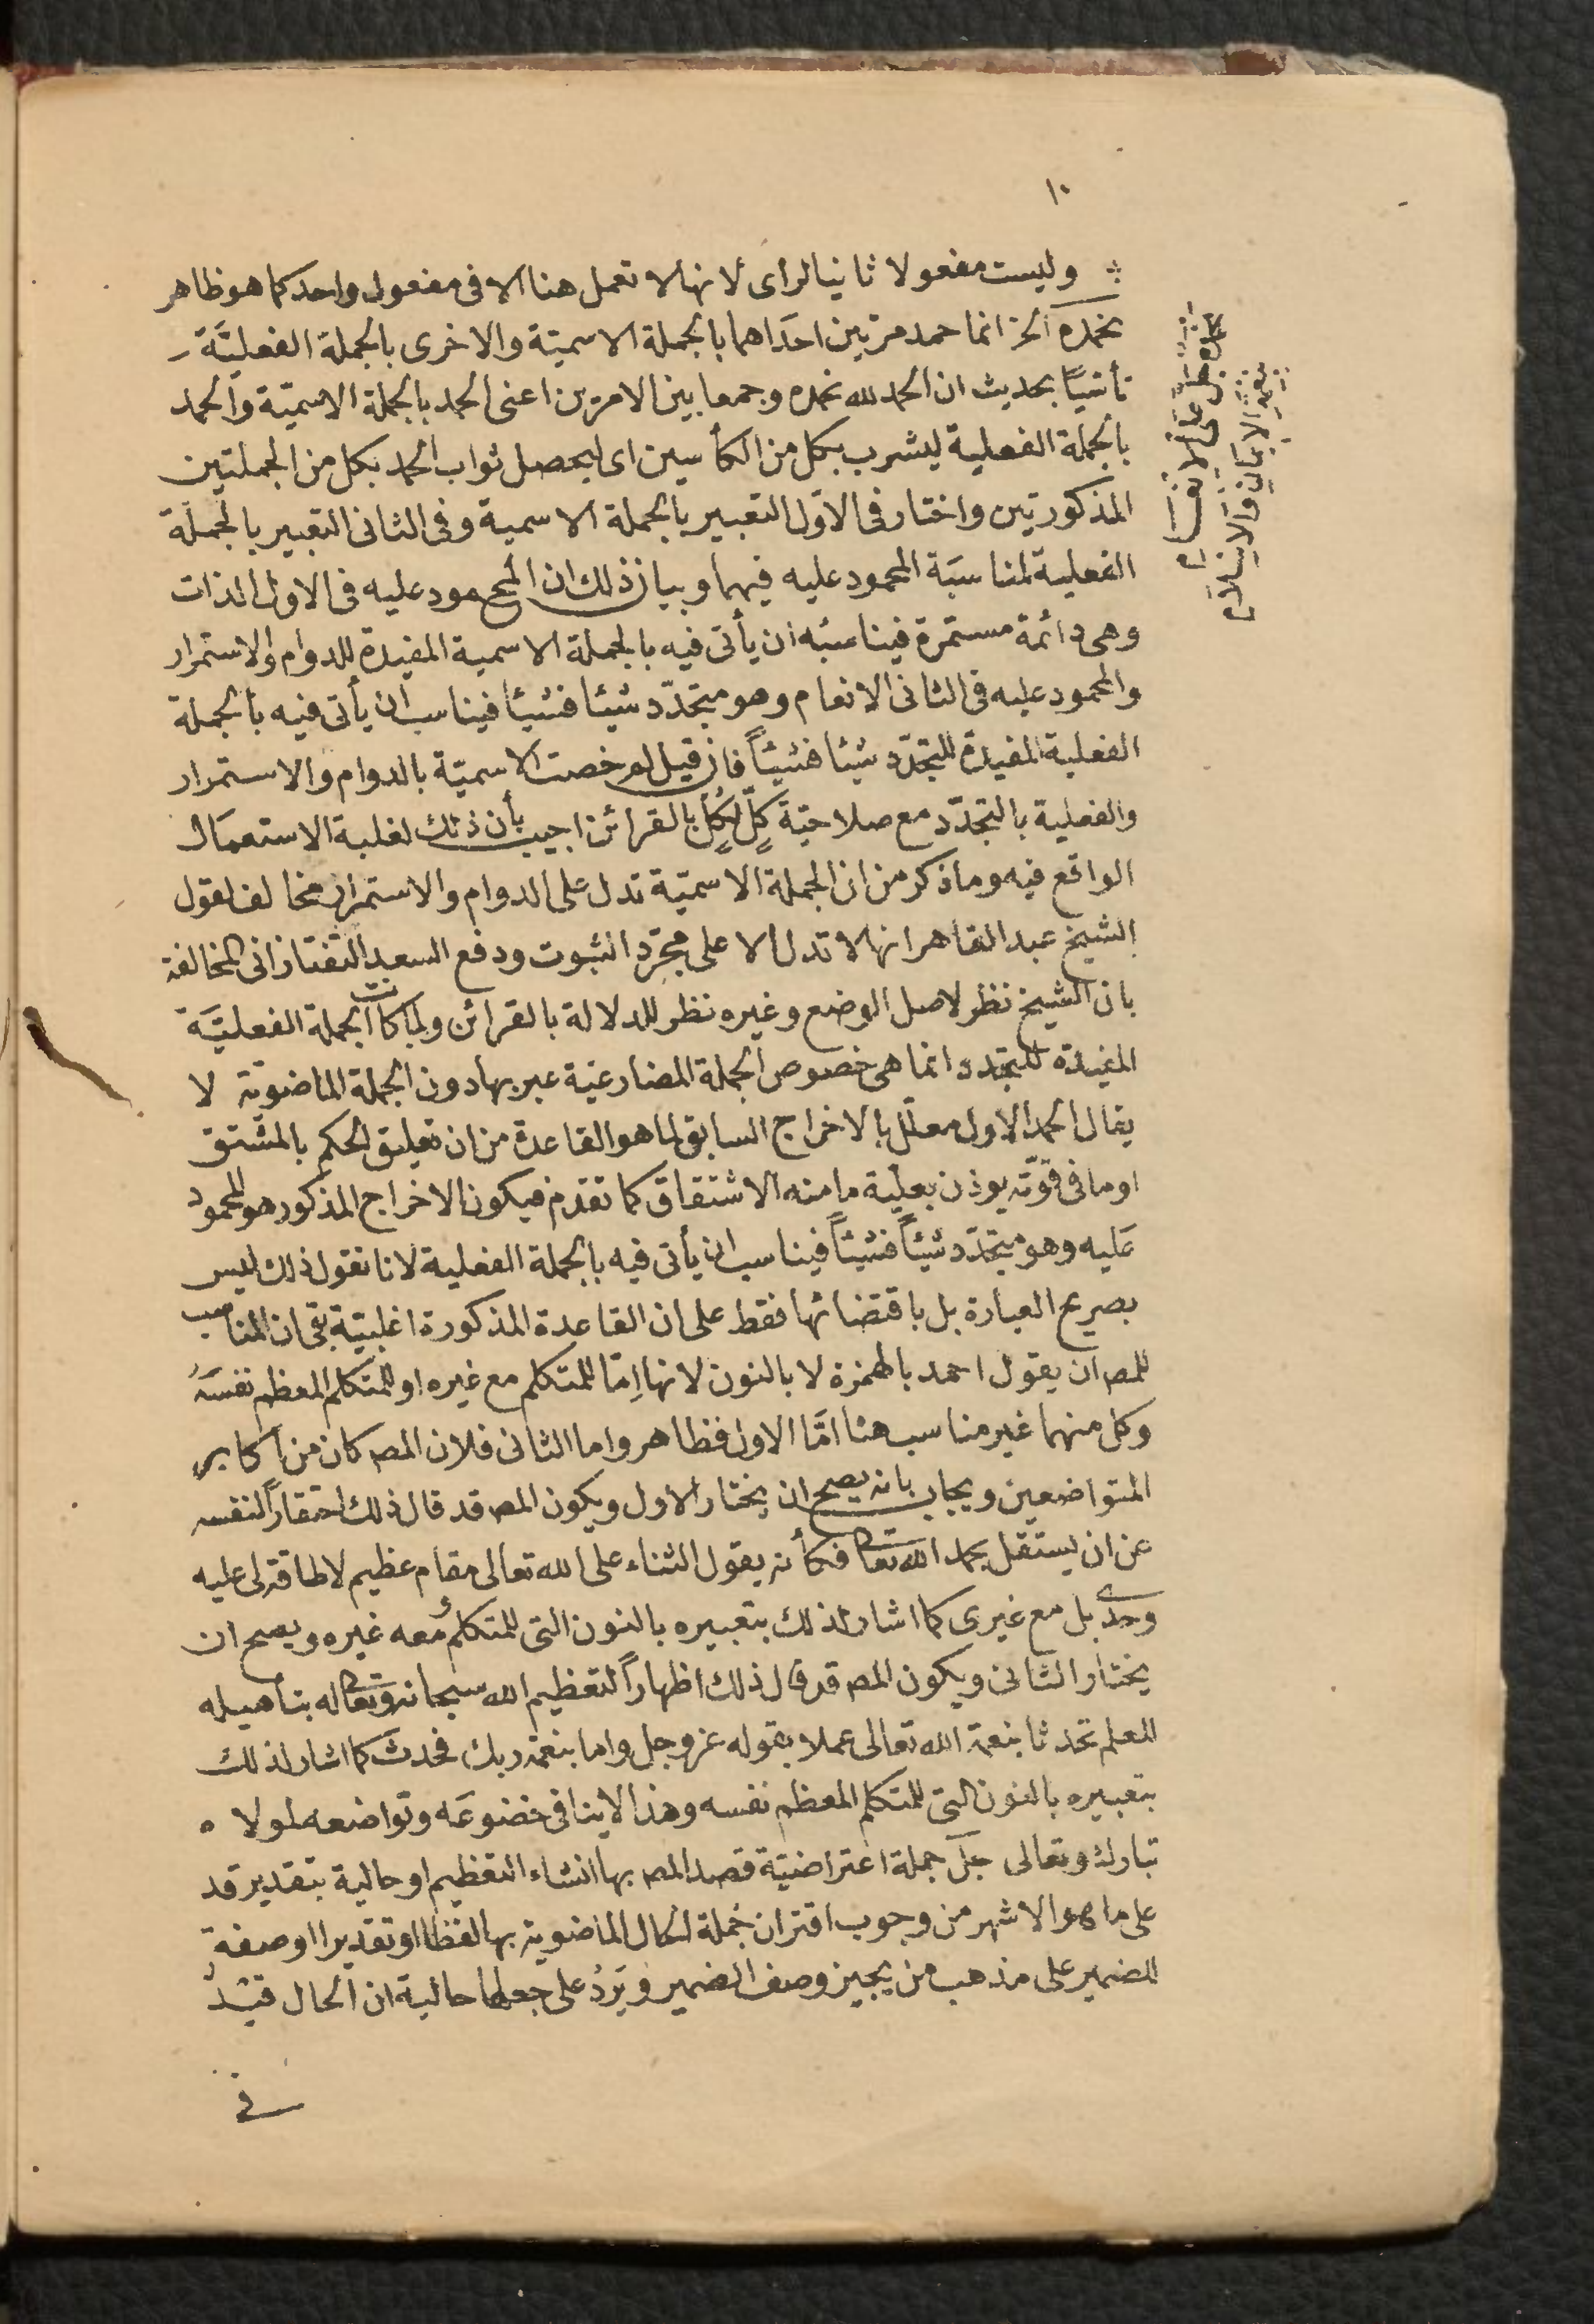 ١٠
وليست مفعولا ثانيا لرأى لانها لا تعمل هنا الا فى مفعول واحد كما هو ظاهر
نحمده الخ انما حمد مرتين احداهما بالجملة الاسميّة والاخرى بالجملة الفعليَّة
تأسّيًا بحديث ان الحمد لله نحمده وجمعا بين الامرين اعنى الحمد بالجملة الاسميّة والحمد
بالجملة الفعلية ليشرب بكل من الكأسين اى ليحصل ثواب الحمد بكل من الجملتين
المذكورتين واختار فى الاوّل التعبير بالجملة الاسمية وفى الثانى التعبير بالجملة
الفعلية لمناسبَة المحمود عليه فيهما وبيان ذلك ان المحمود عليه فى الاول الذات
وهى دائمة مستمرة فيناسبه ان يأتى فيه بالجملة الاسمية المفيدة للدوام والاستمرار
والمحمود عليه فى الثانى الانعام وهو متجدّد شيئا فشيئًا فيناسب ان يأتى فيه بالجملة
الفعلية المفيدة للتجدّد شيئا فشيئًا فان قيل لم خصت الاسميّة بالدوام والاستمرار
والفعلية بالتجدّد مع صلاحيّة كلٍّ لكلٍّ بالقرائن اجيب بأن ذلك لغلبة الاستعمال
الواقع فيه وما ذكر من ان الجملة الاسميّة تدل على الدوام والاستمرار مخالف لقول
الشيخ عبد القاهر انها لا تدل الا على مجرّد الثبوت ودفع السعد التفتازانى المخالفة
بان الشيخ نظر لاصل الوضع وغيره نظر للدلالة بالقرائن ولما كانت الجملة الفعليَّة
المفيدة للتجدد انما هى خصوص الجملة المضارعيّة عبر بها دون الجملة الماضويّة لا
يقال الحمد الاول معلّل بالاخراج السابق لما هو القاعدة من ان تعليق الحكم بالمشتق
او ما فى قوّته يوذن بعليّة ما منه الاشتقاق كما تقدم فيكون الاخراج المذكور هو المحمود
عَليه وهو متجدّد شيئًا فشيئًا فيناسب ان يأتى فيه بالجملة الفعلية لانا نقول ذلك ليس
بصريح العبارة بل باقتضائها فقط على ان القاعدة المذكورة اغلبيّة بقى ان المناسب
للمص ان يقول احمد بالهمزة لا بالنون لانها اِمّا للمتكلم مع غيره او للمتكلم المعظم نفسَهُ
وكل منهما غير مناسب هنا امَّا الاول فظاهر واما الثانى فلان المص كان من اكابر
المتواضعين ويجاب بانه يصح ان يختار الاول ويكون المص قد قال ذلك احتقاراً لنفسه
عن ان يستقل بحمد الله تعالى فكأنه يقول الثناء على الله تعالى مقام عظيم لا طاقة لى عليه
وحدى بل مع غيرى كما اشار لذلك بتعبيره بالنون التى للمتكلم ومعه غيره ويصح ان
يختار الثانى ويكون المص قد قال ذلك اظهاراً لتعظيم الله سبحانه وتعالى له بتأهيله
للعلم تحدثا بنعمة الله تعالى عملا بقوله عز وجل واما بنعمة ربك فحدث كما اشار لذلك
بتعبيره بالنون التى للمتكلم المعظم نفسه وهذا لا ينافى خضوعَه وتواضعه لمولاه
تبارك وتعالى جلّ جملة اعتراضيّة قصد المص بها انشاء التعظيم او حالية بتقدير قد
على ما هو الاشهر من وجوب اقتران جُملة الحال الماضوية بها لفظا او تقديرا او صفة
للضمير على مذهب من يجيز وصف الضمير ويَردُ على جعلها حالية ان الحال قيْدٌ
فى
نحمده جل على الانعام
بنعمة الايمان والاسلام